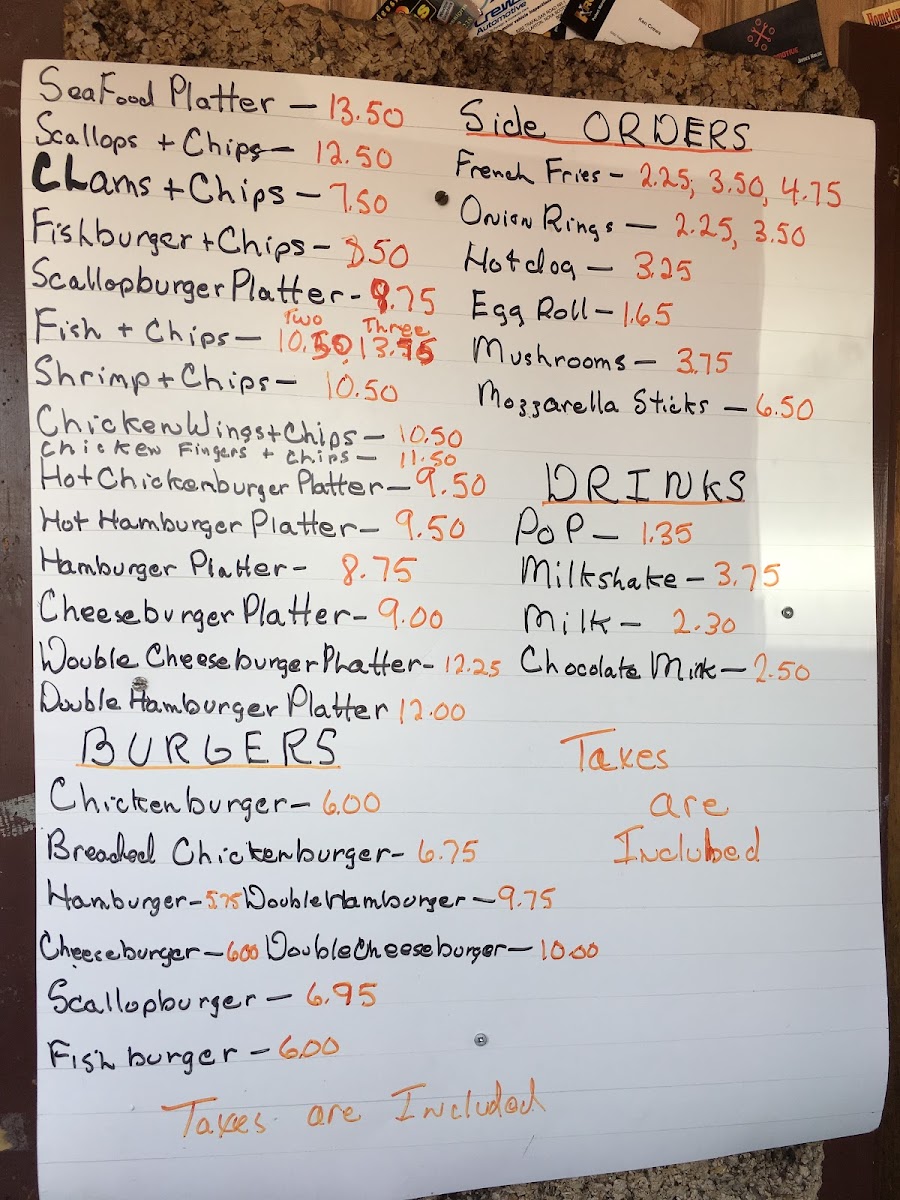 Crews
Automotive
Ken Crews
Hometown
SeaFood Platter – 13.50
Scallops + Chips – 12.50
CLams + Chips – 7.50
Fishburger + Chips – 8.50
Scallopburger Platter - 9.75
Two Three
Fish + Chips – 10.50, 13.75
Shrimp + Chips – 10.50
Chicken Wings + Chips – 10.50
Chicken Fingers + Chips – 11.50
Hot Chickenburger Platter – 9.50
Hot Hamburger Platter – 9.50
Hamburger Platter - 8.75
Cheeseburger Platter – 9.00
Double Cheeseburger Platter - 12.25
Double Hamburger Platter 12.00
BURGERS
Chickenburger – 6.00
Breaded Chickenburger – 6.75
Hamburger – 5.75 Double Hamburger – 9.75
Cheeseburger – 6.00 Double Cheeseburger – 10.00
Scallopburger – 6.95
Fishburger – 6.00
Taxes are Included
Side ORDERS
French Fries – 2.25, 3.50, 4.75
Onion Rings – 2.25, 3.50
Hotdog – 3.25
Egg Roll – 1.65
Mushrooms – 3.75
Mozzarella Sticks – 6.50
DRINKS
PoP – 1.35
Milkshake – 3.75
Milk – 2.30
Chocolate Milk – 2.50
Taxes
are
Included